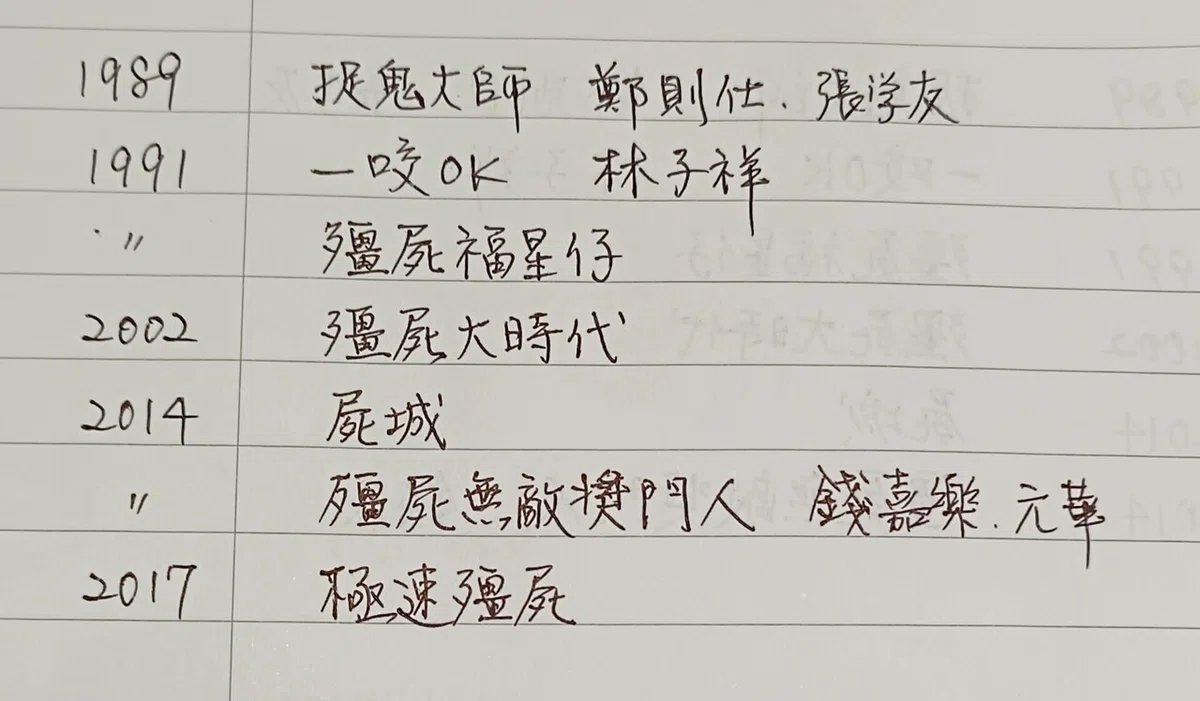 1989 捉鬼大師 鄭則仕、張学友
1991 一咬OK 林子祥
〃 殭屍福星仔
2002 殭屍大時代
2014 屍城
〃 殭屍無敵獎門人 錢嘉樂、元華
2017 極速殭屍